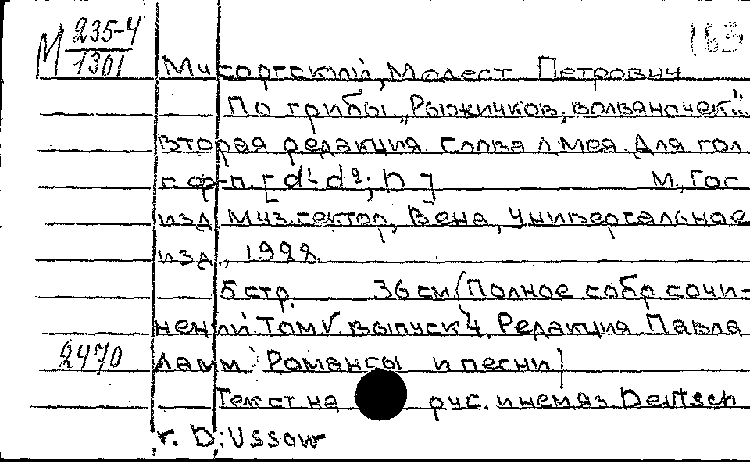 М 235-4
1301
163
Мусоргский, Модест Петрович
По грибы „Рыжичков, волвяночек..."
вторая редакция. Слова Л. Мея. Для гол.
с ф-п. [d¹-d²; D] М., Гос.
изд. Муз. сектор, Вена, Универсальное
изд., 1928.
5 стр. 36 см (Полное собр. сочи-
нений. Том V. выпуск 4. Редакция Павла
2470 Ламм. Романсы и песни)
Текст на рус. и немяз. Deutsch
v. D. Ussow